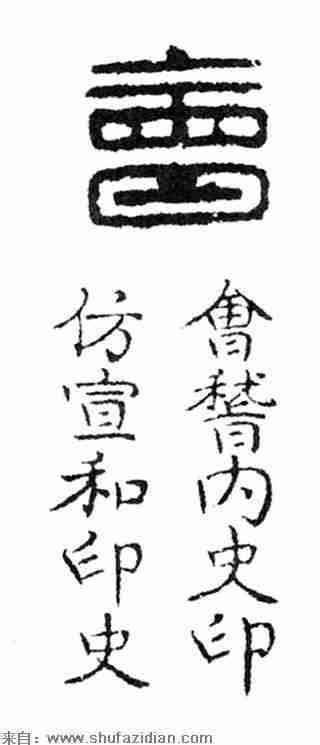 會稽内史印
仿宣和印史
来自：www.shufazidian.com